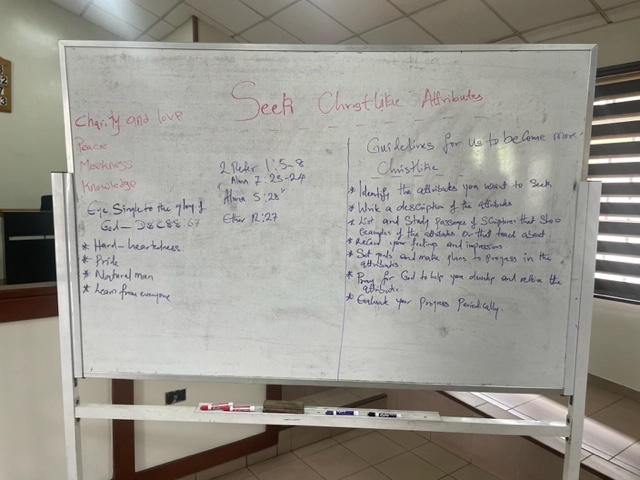 Seek Christlike Attributes
Charity and love
Peace
Meekness
Knowledge
Eye Single to the glory of
God — D&C 88:67
* Hard-heartedness
* Pride
* Natural man
* Learn from everyone
2 Peter 1:5-8
Alma 7:23-24
Alma 5:28
Ether 12:27
Guidelines for us to become more
Christlike
* Identify the attributes you want to Seek
* Write a description of the attributes
* List and Study Passages of Scriptures that Show
examples of the attributes or that teach about
* Record your feelings and impressions
* Set goals and make plans to progress in the
attributes.
* Pray for God to help you develop and the
attribute.
* Evaluate your Progress Periodically.
3
2
7
3